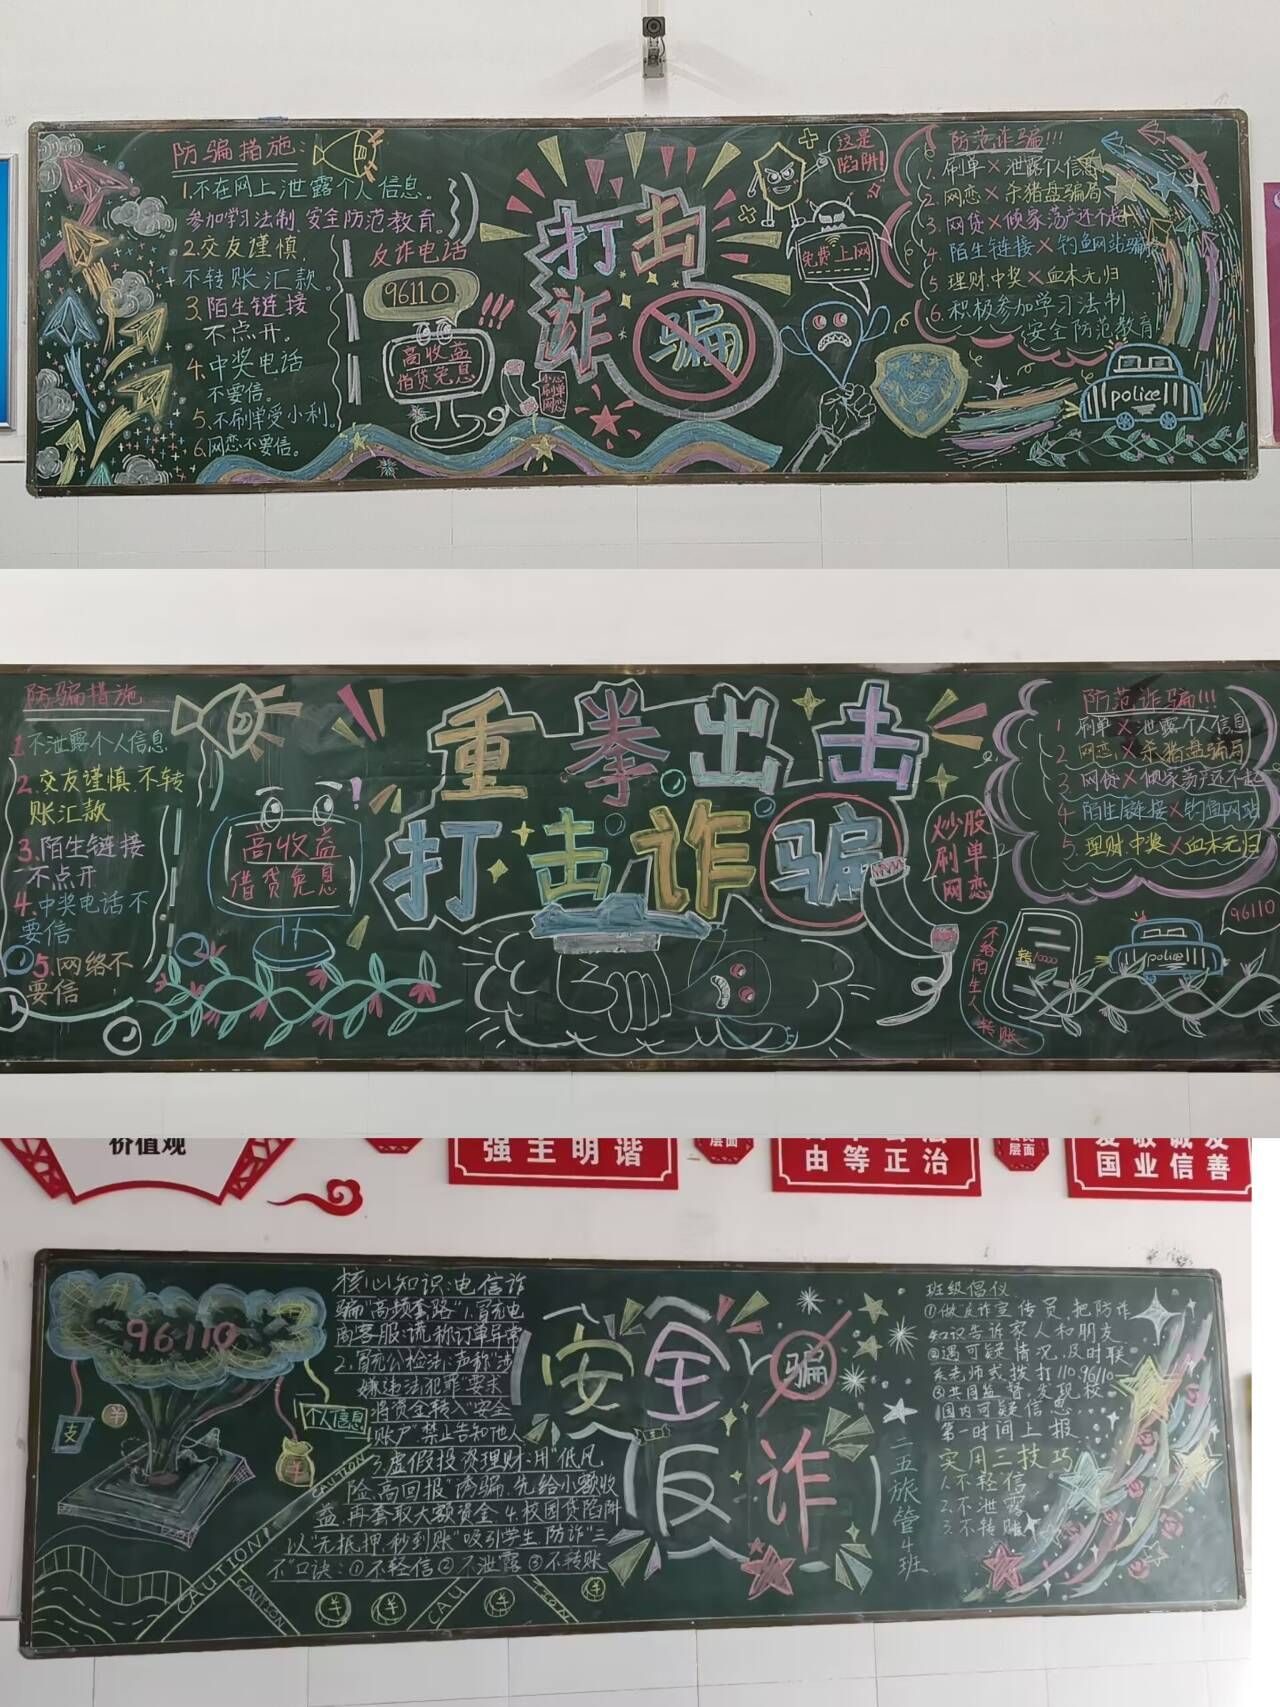 防骗措施:
1.不在网上泄露个人信息。
参加学习法制、安全防范教育。
2.交友谨慎,
不转账汇款。
3.陌生链接
不点开。
4.中奖电话
不要信。
5.不刷单受小利。
6.网恋不要信。
反诈电话
96110
高收益
借贷免息
小心
刷单
网恋
打击
诈骗
这是
陷阱!
免费上网
防范诈骗!!!
1.刷单×泄露个人信息
2.网恋×杀猪盘骗局
3.网贷×倾家荡产还不起
4.陌生链接×钓鱼网站骗
5.理财.中奖×血本无归
6.积极参加学习法制
安全防范教育!
police
防骗措施
1.不泄露个人信息
2.交友谨慎.不转
账汇款
3.陌生链接
不点开
4.中奖电话不
要信
5.网络不
要信
高收益
借贷免息
重拳出击
打击诈骗
炒股
刷单
网恋
防范诈骗!!!
1 刷单×泄露个人信息
2 网恋×杀猪盘骗局
3 网贷×倾家荡产还不起
4 陌生链接×钓鱼网站
5.理财.中奖×血本无归
不给陌生人转账
police
96110
价值观
强主明谐
层面
由等正治
层面
国业信善
96110
支
个人信息
核心知识:电信诈
骗"高频套路"1.冒充电
商客服:谎称订单异常
2.冒充公检法:声称"涉
嫌违法犯罪"要求
将资金转入"安全
账户"禁止告知他人
3.虚假投资理财:用"低风
险、高回报"诱骗,先给小额收
益,再套取大额资金 4.校园贷陷阱
以"无抵押、秒到账"吸引学生.防诈"三
不"口诀:①不轻信②不泄露③不转账
CAUTION
CAUTION
安全
反诈
骗
二五旅管4班
班级倡仪
①做"反诈宣传员,把防诈
知识告诉家人和朋友
②遇可疑情况,及时联
系老师或拨打110.96110
③共同监督,发现校
园内可疑信息
第一时间上报
实用三技巧
1.不轻信
2.不泄露
3.不转账